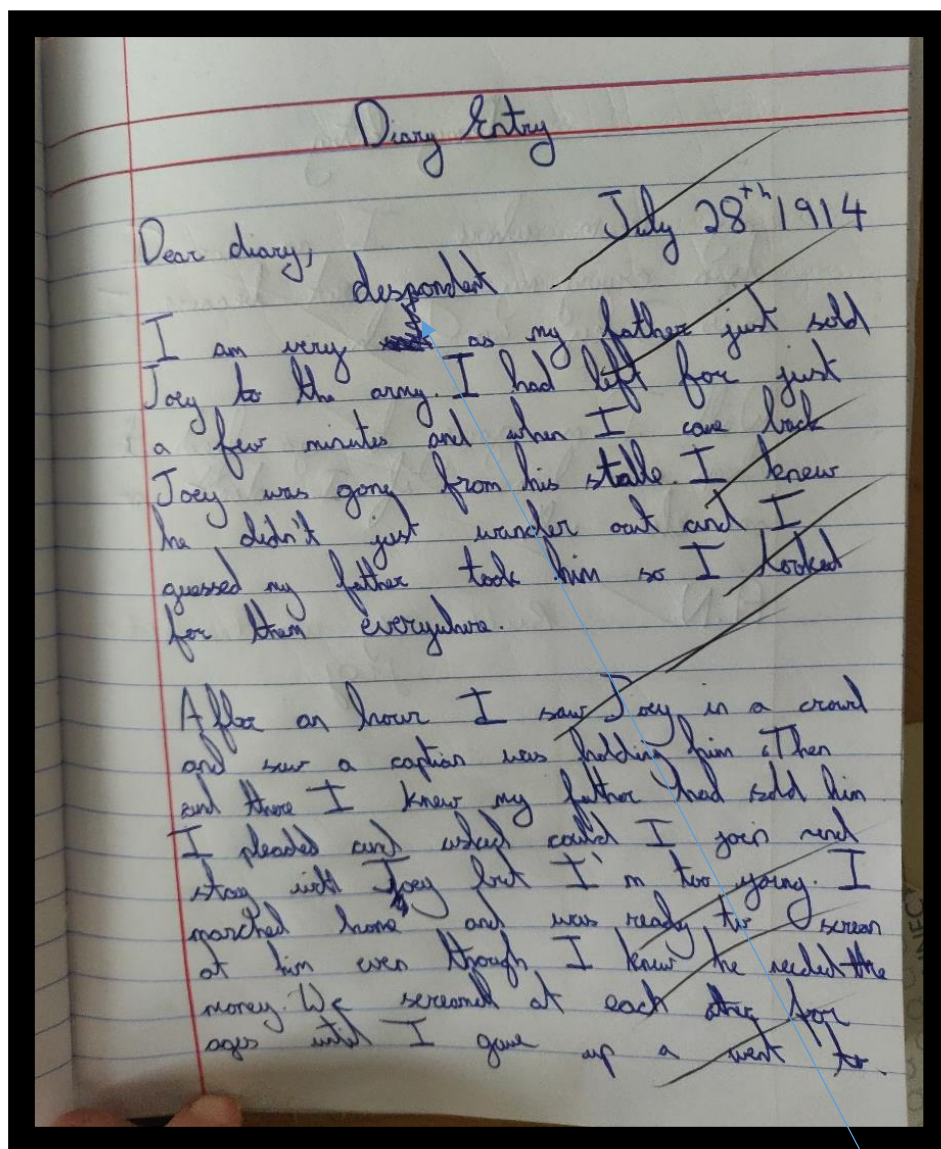 Diary Entry
July 28th 1914
Dear diary,
despondent
I am very as my father just sold
Joey to the army. I had left for just
a few minutes and when I came back
Joey was gone from his stable. I knew
he didn't just wander out and I
guessed my father took him so I looked
for them everywhere.
After an hour I saw Joey in a crowd
and saw a captian was holding him. Then
and there I knew my father had sold him
I pleaded and asked could I join and
stay with Joey but I'm too young. I
marched home and was ready to scream
at him even though I knew he needed the
money. We screamed at each other for
ages until I gave up a went to